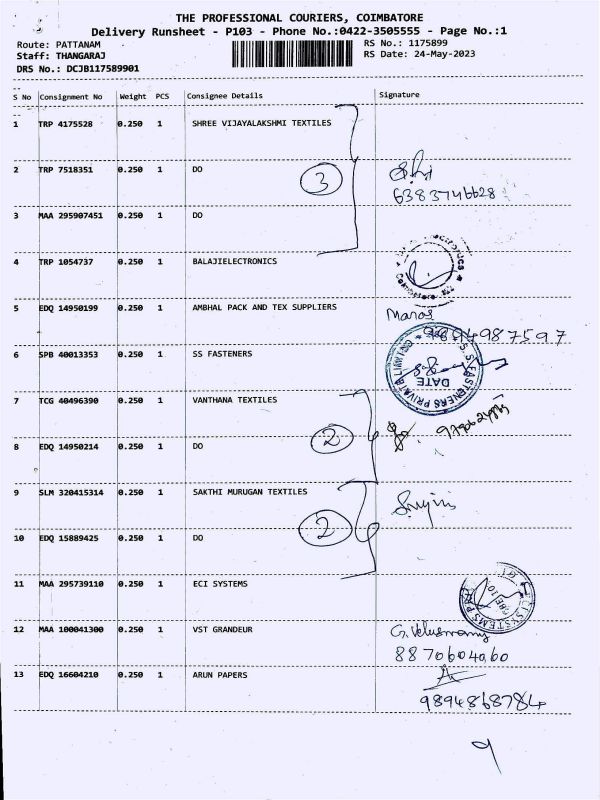 THE PROFESSIONAL COURIERS, COIMBATORE
Delivery Runsheet - P103 - Phone No.:0422-3505555 - Page No.:1
Route: PATTANAM
RS No.: 1175899
Staff: THANGARAJ
RS Date: 24-May-2023
DRS No.: DCJB117589901
S No Consignment No Weight PCS Consignee Details Signature
1 TRP 4175528 0.250 1 SHREE VIJAYALAKSHMI TEXTILES
2 TRP 7518351 0.250 1 DO
3
6383746628
3 MAA 295907451 0.250 1 DO
4 TRP 1054737 0.250 1 BALAJIELECTRONICS
5 EDQ 14950199 0.250 1 AMBHAL PACK AND TEX SUPPLIERS
6 SPB 40013353 0.250 1 SS FASTENERS
DATE
7 TCG 40496390 0.250 1 VANTHANA TEXTILES
2
8 EDQ 14950214 0.250 1 DO
9 SLM 320415314 0.250 1 SAKTHI MURUGAN TEXTILES
2
10 EDQ 15889425 0.250 1 DO
11 MAA 295739110 0.250 1 ECI SYSTEMS
12 MAA 100041300 0.250 1 VST GRANDEUR
G. Veluswamy
8870604060
13 EDQ 16604210 0.250 1 ARUN PAPERS
9894868784
9